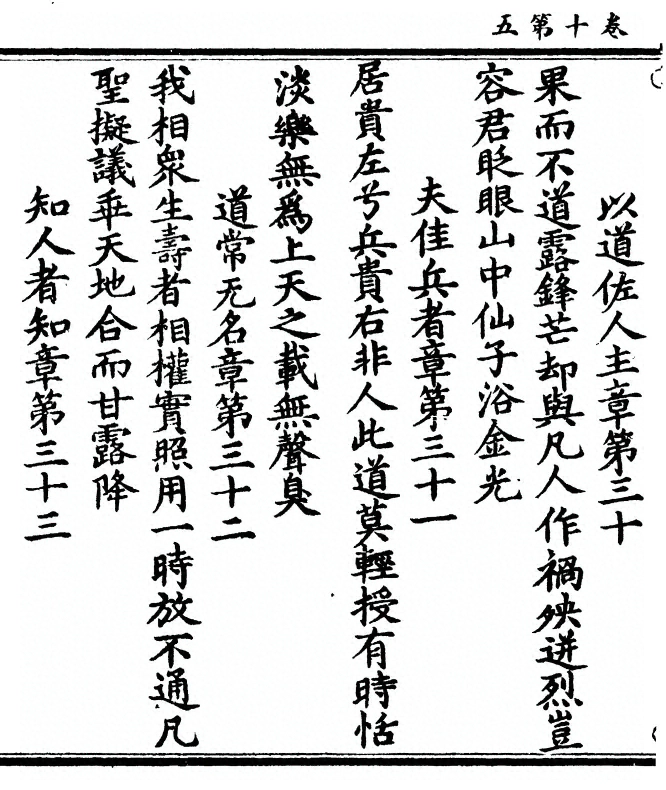 卷十第五
以道佐人主章第三十
果而不道露鋒芒却與凡人作禍殃迸烈豈
容君眨眼山中仙子浴金光
夫佳兵者章第三十一
居貴左兮兵貴右非人此道莫輕授有時恬
淡樂無爲上天之載無聲臭
道常无名章第三十二
我相衆生壽者相權實照用一時放不通凡
聖擬議乖天地合而甘露降
知人者知章第三十三